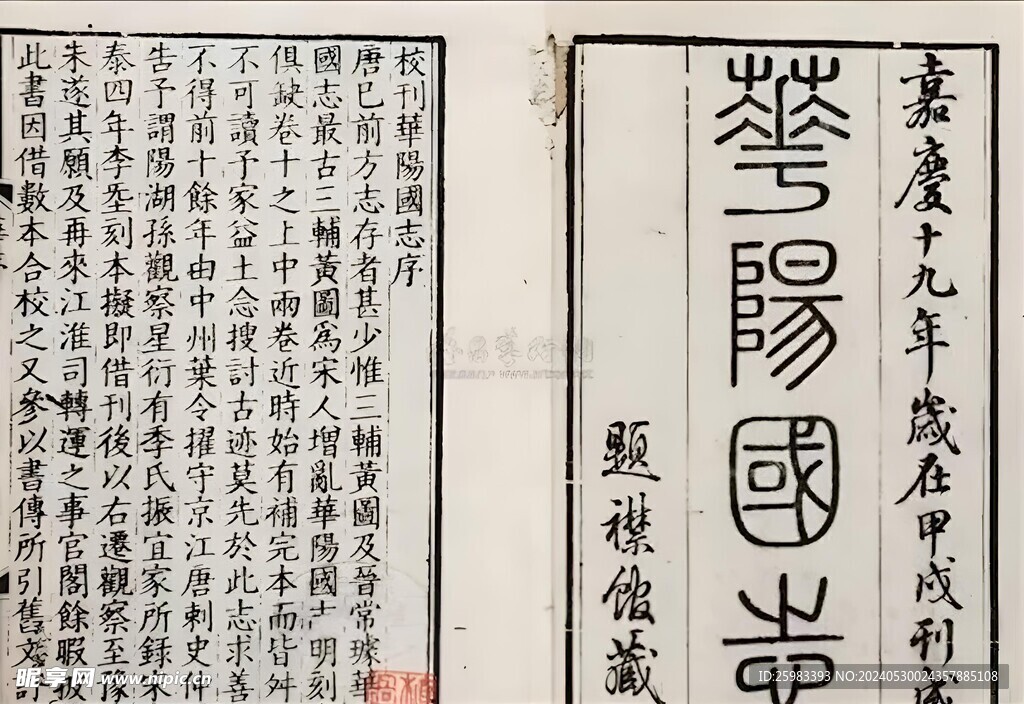 嘉慶十九年歲在甲戌刊
華陽國志
題襟館藏
校刊華陽國志序
唐已前方志存者甚少惟三輔黃圖及晉常璩華
國志最古三輔黃圖爲宋人增亂華陽國志明刻
俱缺卷十之上中兩卷近時始有補完本而皆舛
不可讀予家益土念搜討古迹莫先於此志求善
不得前十餘年由中州葉令擢守京江唐刺史仲
告予謂陽湖孫觀察星衍有季氏振宜家所錄宋
泰四年李㙬刻本擬即借刊後以右遷觀察至豫
朱遂其願及再來江淮司轉運之事官閣餘暇披
此書因借數本合校之又參以書傳所引舊文訂
昵享网 www.nipic.cn
ID:25983393 NO:20240530024357885108